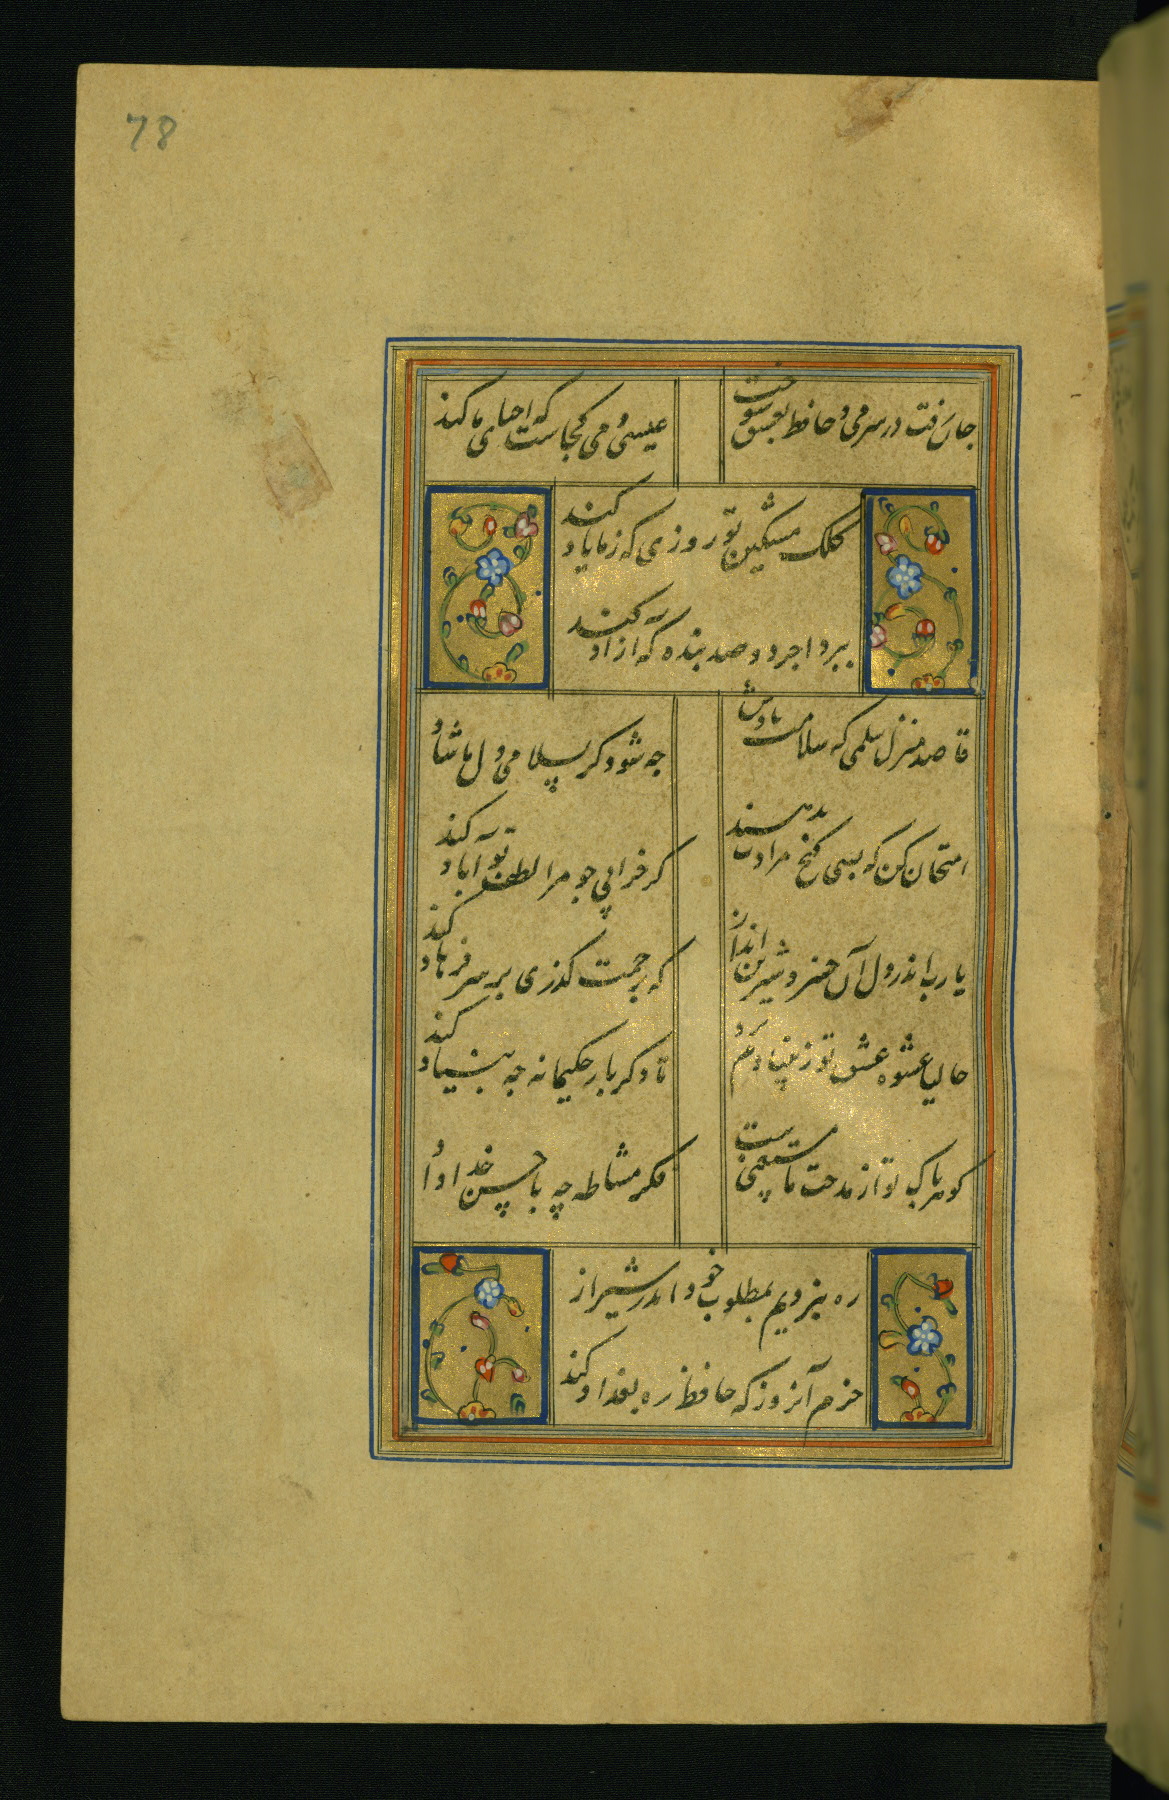 78
جان رفت در سر می و حافظ بعشق سوخت
عیسی دمی کجاست که احیای ما کند
کلک مشکین تو روزی که ز ما یاد کند
ببرد اجر دو صد بنده که آزاد کند
قاصد منزل سلمی که سلامت بادش
چه شود گر بسلامی دل ما شاد
امتحان کن که بسی گنج مرادت بدهند
گر خرابی چو مرا لطف تو آباد کند
یا رب اندر دل آن خسرو شیرین انداز
که برحمت گذری بر سر فرهاد کند
حالیا عشوه عشق تو ز بنیادم برد
تا دگر بار حکیمانه چه بنیاد کند
گوهر پاک تو از مدحت ما مستغنیست
فکر مشاطه چه با حسن خدا داد
ره نبردیم بمطلوب خود اندر شیراز
خرم آنروز که حافظ ره بغداد کند